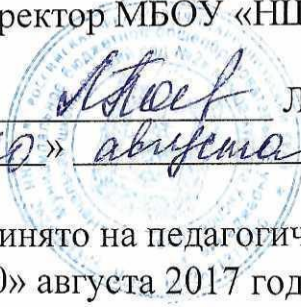 ректор МБОУ «НШ
Л
0» августа
инято на педагогич
0» августа 2017 год